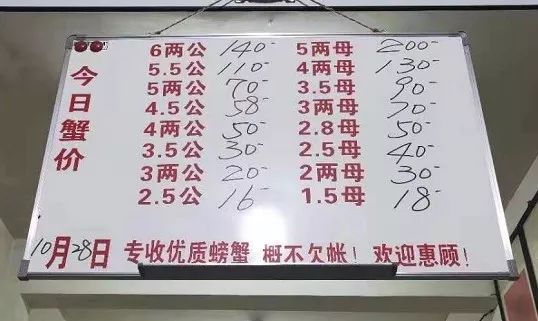 今日蟹价
6两公 140- 5两母 200-
5.5公 110- 4两母 130-
5两公 70- 3.5母 90-
4.5公 58- 3两母 70-
4两公 50- 2.8母 50-
3.5公 30- 2.5母 40-
3两公 20- 2两母 30-
2.5公 16- 1.5母 18-
10月28日 专收优质螃蟹 概不欠帐！ 欢迎惠顾！